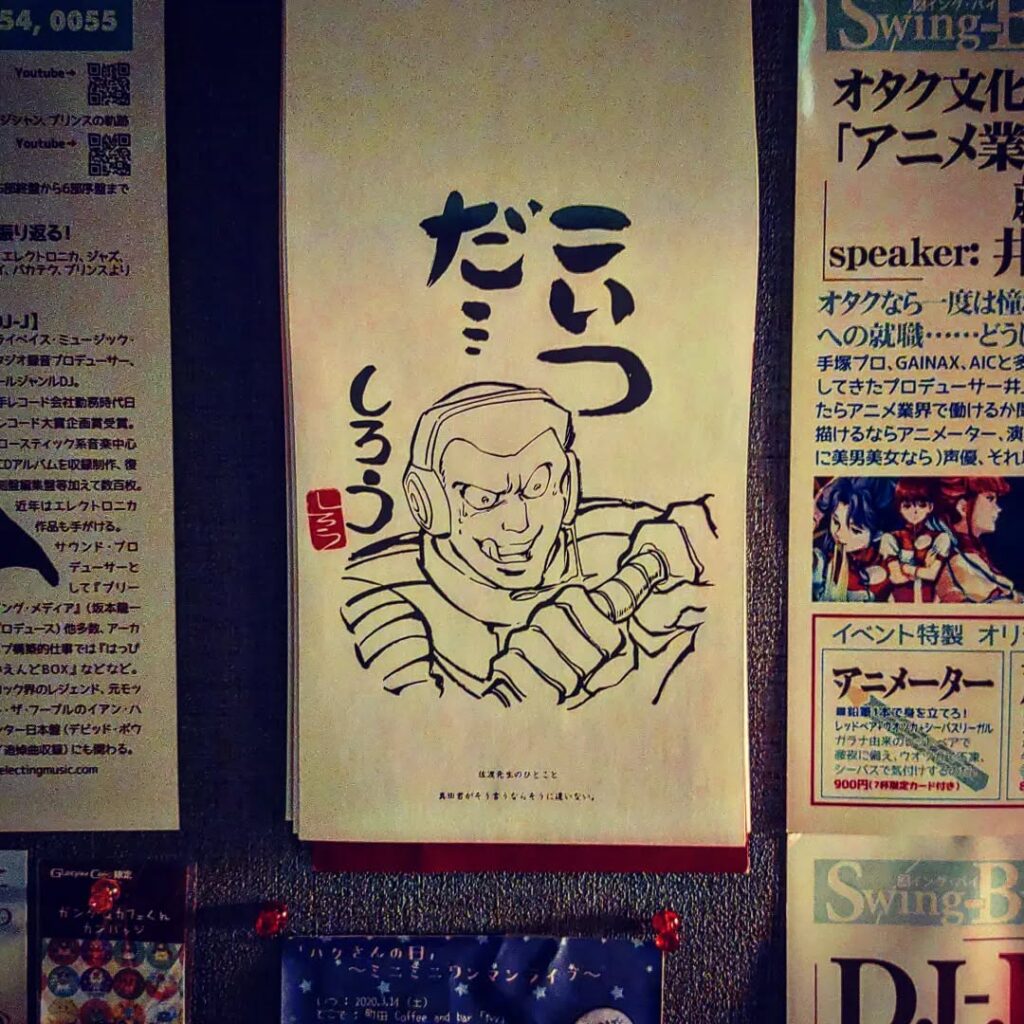 54, 0055
Youtube→
ジシャン、プリンスの軌跡
Youtube→
部終盤から6部序盤まで
振り返る！
エレクトロニカ、ジャズ、
イ、バカテク、プリンスより
J-J】
ライベイス・ミュージック・
タジオ録音プロデューサー、
ールジャンルDJ。
手レコード会社勤務時代日
レコード大賞企画賞受賞。
ロースティック系音楽中心
CDアルバムを収録制作、復
刻盤編集盤等加えて数百枚。
近年はエレクトロニカ
作品も手がける。
サウンド・プロ
デューサーと
して『ブリー
ング・メディア』（坂本龍一
プロデュース）他多数、アーカ
ブ構築的仕事では『はっぴ
いえんどBOX』などなど。
ック界のレジェンド、元モッ
・ザ・フープルのイアン・ハ
ンター日本盤（デビッド・ボウ
イ追悼曲収録）にも関わる。
electingmusic.com
こいつ
だミ
しろう
しろう
佐渡先生のひとこと
真田君がそう言うなんそうに違いない。
Swing-B
オタク文化
「アニメ業
speaker: 井
オタクなら一度は憧
への就職……どうし
手塚プロ、GAINAX、AICと多
してきたプロデューサー井上
たらアニメ業界で働けるか
描けるならアニメーター、演
に美男美女なら）声優、それ
イベント特製 オリ
アニメーター
■鉛筆1本で身を立てろ！
レッドベア+ウオッカ+シーバスリーガル
ガラナ由来の
徹夜に備え、ウオッカ
シーバスで気付けする
900円(7杯限定カード付き)
Swing-B
DJ-
限定
カンバッジ
「ハクさんの日」
～ミニミニワンマンライブ～
いつ：2020.3.14（土）
どこで：町田 Coffee and bar